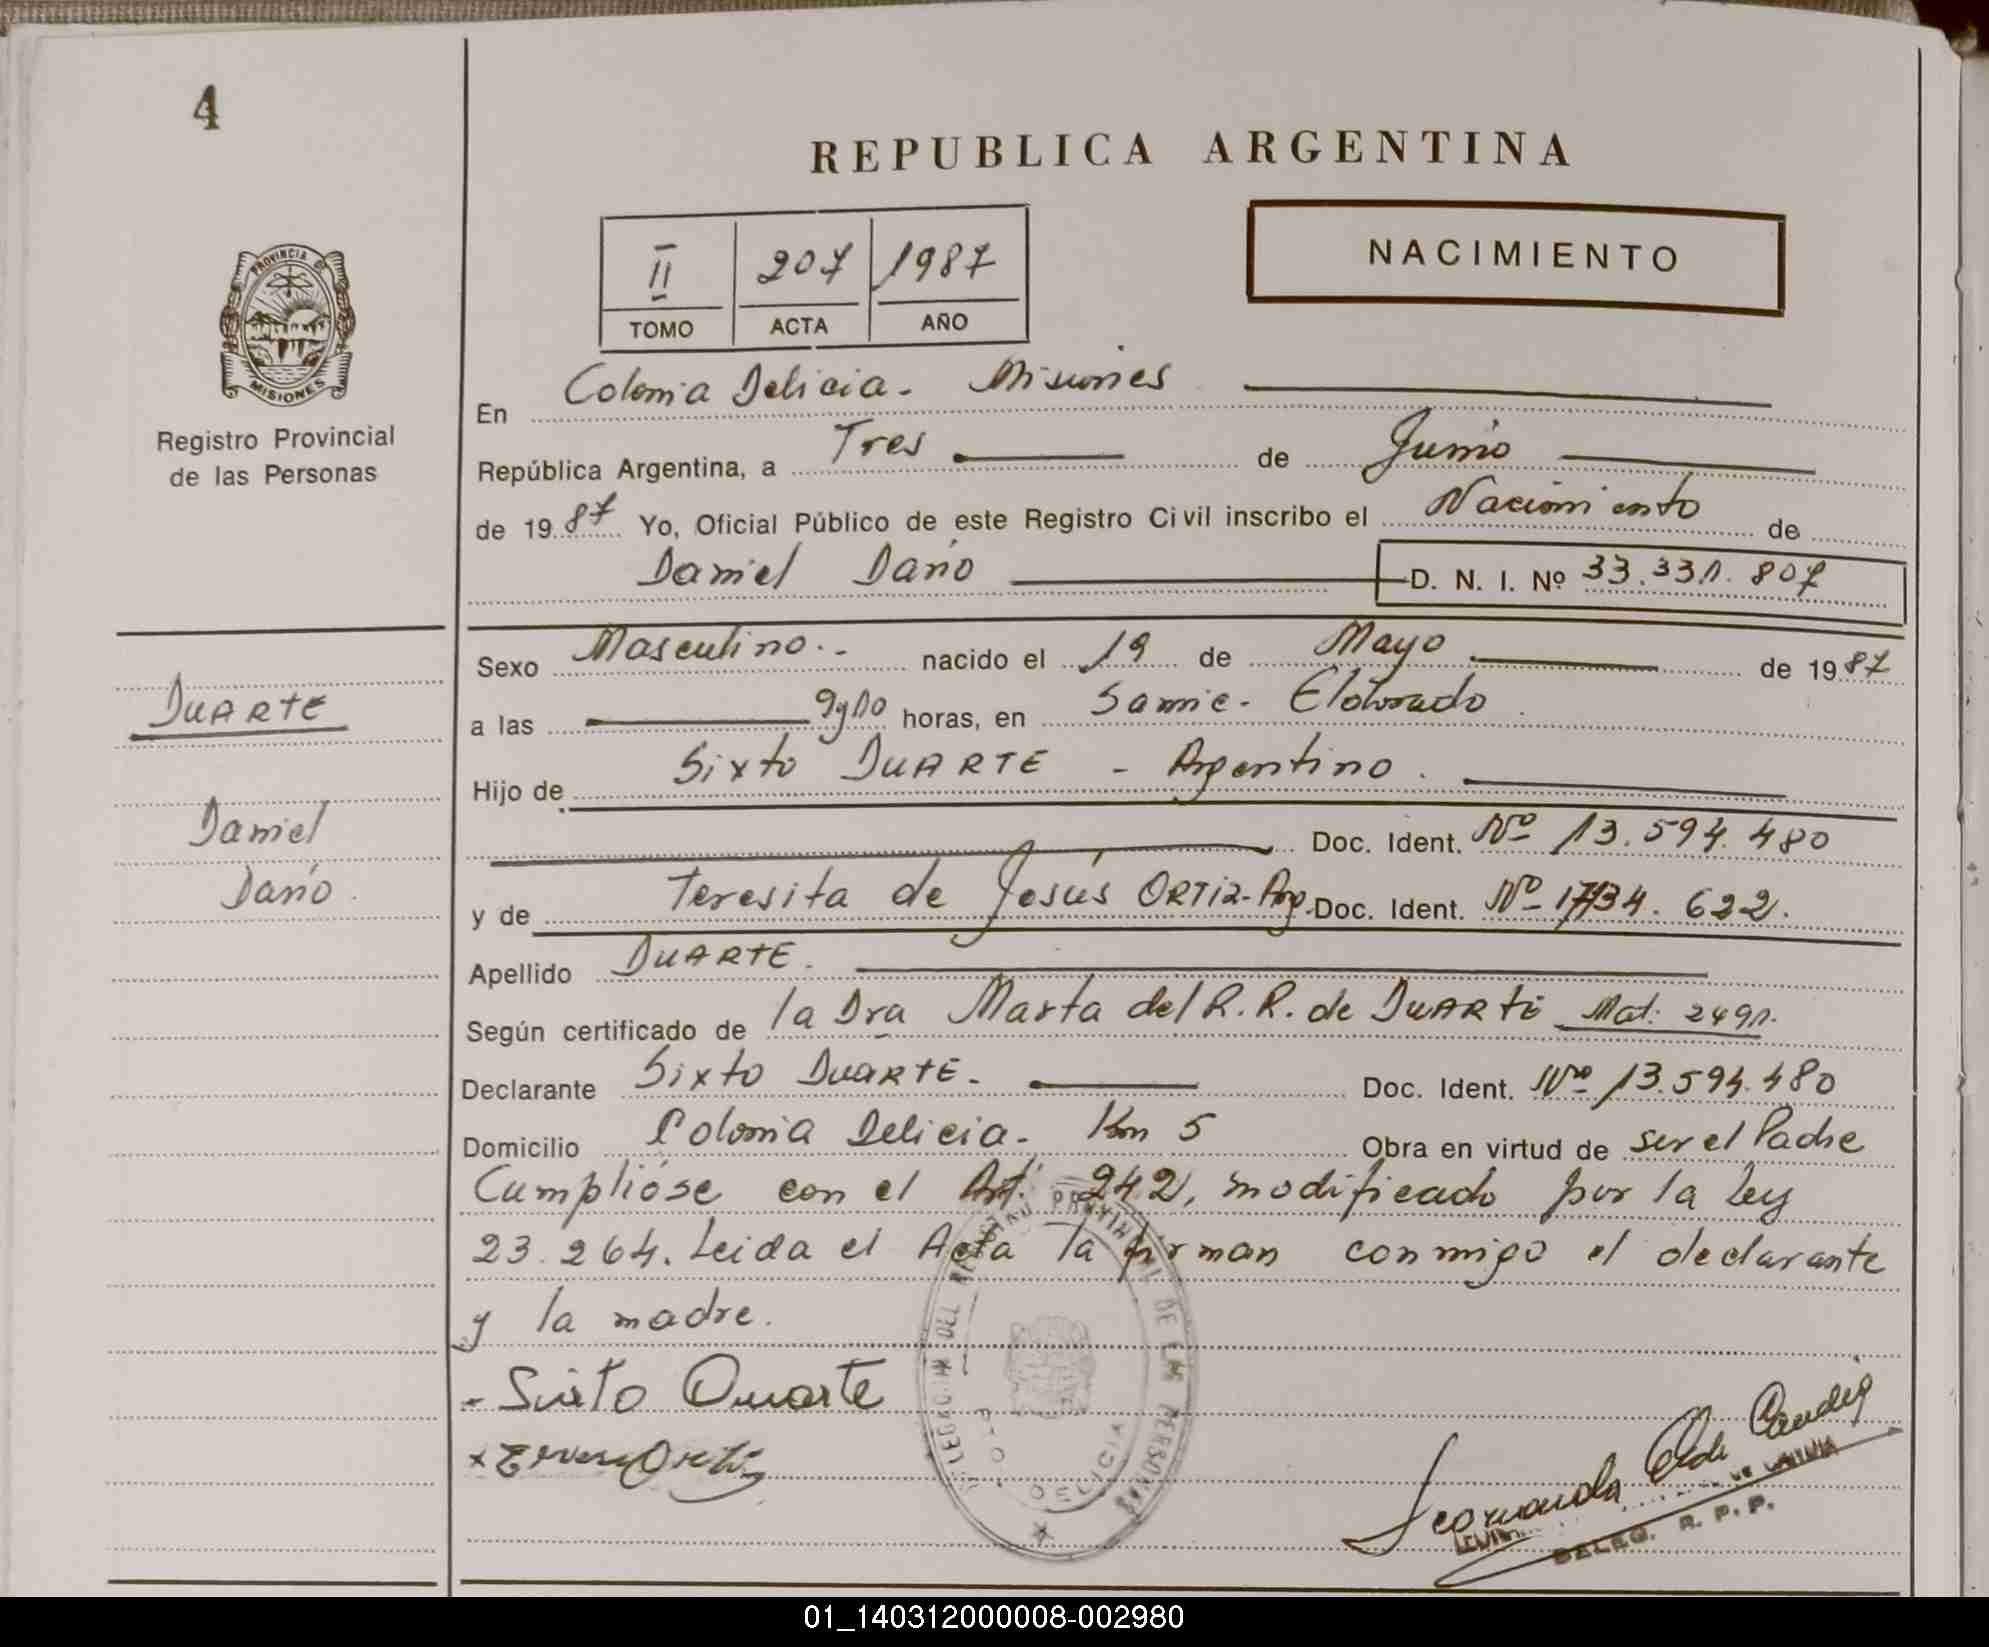 4
REPUBLICA ARGENTINA
NACIMIENTO
II 207 1987
TOMO ACTA AÑO
PROVINCIA DE
MISIONES
Registro Provincial
de las Personas
En Colonia Delicia - Misiones
República Argentina, a Tres de Junio
de 1987 Yo, Oficial Público de este Registro Civil inscribo el Nacimiento de
Daniel Darío D. N. I. Nº 33.331.807
Sexo Masculino.- nacido el 19 de Mayo de 1987
a las 9y10 horas, en Samic - Eldorado
Hijo de Sixto DUARTE - Argentino.
Doc. Ident. Nº 13.594.480
y de Teresita de Jesús ORTIZ - Arg. Doc. Ident. Nº 622.
Apellido DUARTE.
Según certificado de la Dra Marta del R. R. de DUARTE Mat: 2491.
Declarante Sixto DUARTE - Doc. Ident. Nº 13.594.480
Domicilio Colonia Delicia - Km 5 Obra en virtud de ser el Padre
Cumplióse con el Art. 242, modificado por la Ley
23.264. Leida el Acta la firman conmigo el declarante
y la madre.
DUARTE
Daniel
Darío.
- Sixto Duarte
DELEGACION DEL REGISTRO PROVINCIAL DE LAS PERSONAS
PTO. DELICIA
DELEG. R. P. P.
01_140312000008-002980